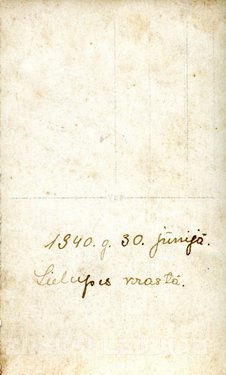 1940. g. 30. jūnijā.
Lielupes krastā.